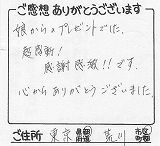 ご感想 ありがとうございます
娘からのプレゼントでした。
感感射!
感謝感激!!です。
心からありがとうございました。
ご住所 東京 都道府県 荒川 市区町村